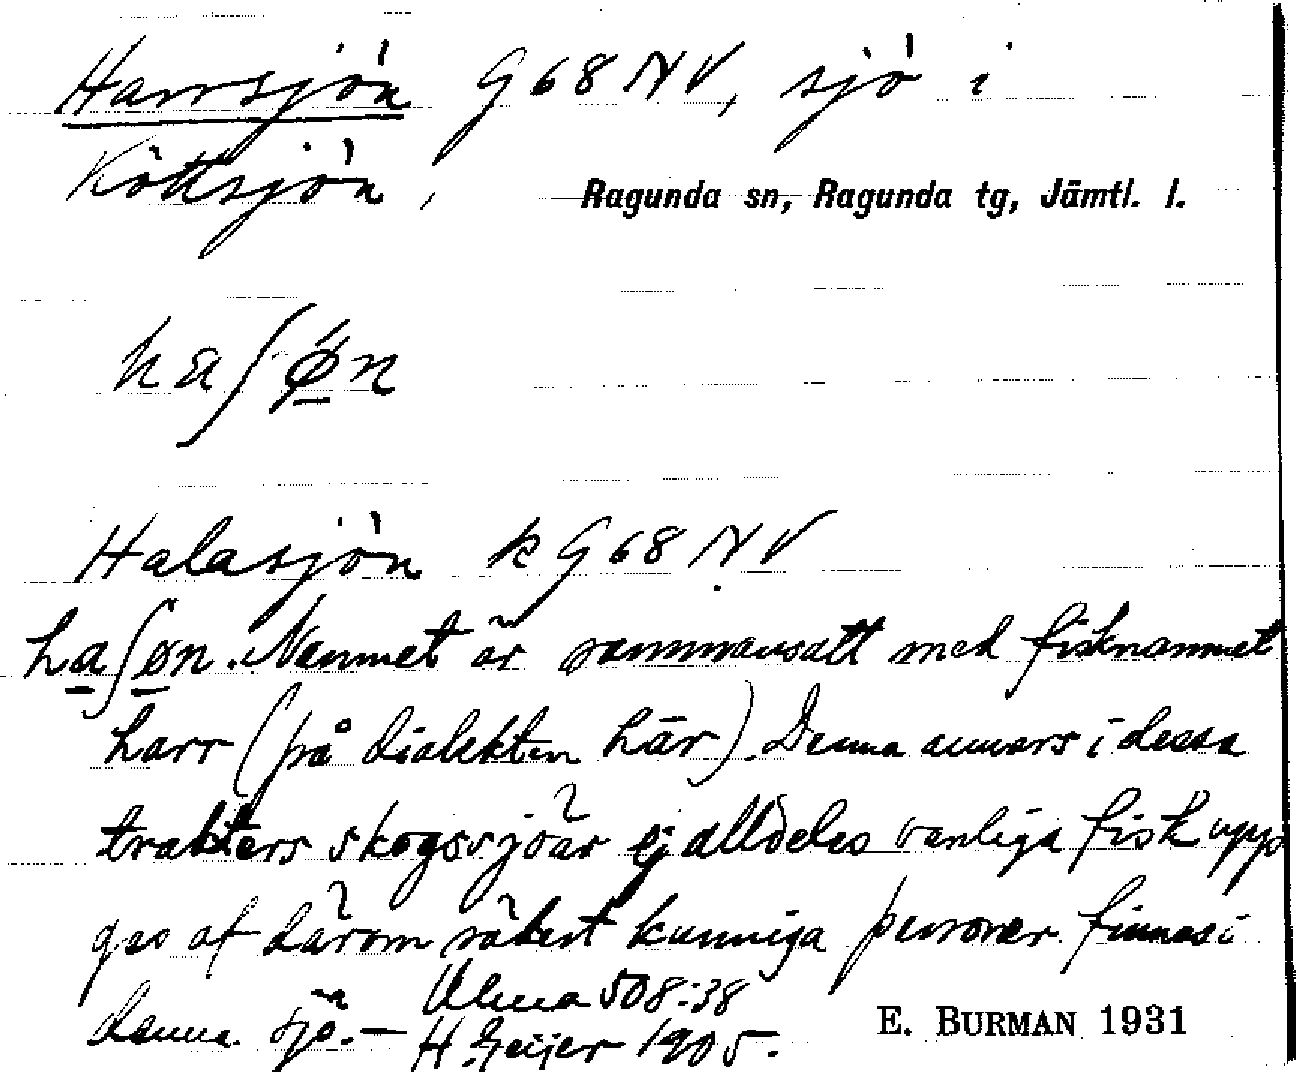 Harrsjön G 68 NV, sjö i
Köttsjön, Ragunda sn, Ragunda tg, Jämtl. l.
haʃø̱n
Halasjön k G 68 NV
ha̱ʃø̱n. Namnet är sammansatt med fisknamnet
harr (på dialekten hār). Denna annars i dessa
trakters skogssjöar ej alldeles vanliga fisk upp
ges af därom säkert kunniga personer finnas i
denna sjö. — Ulma 508:38
H. Geijer 1905.
E. BURMAN 1931